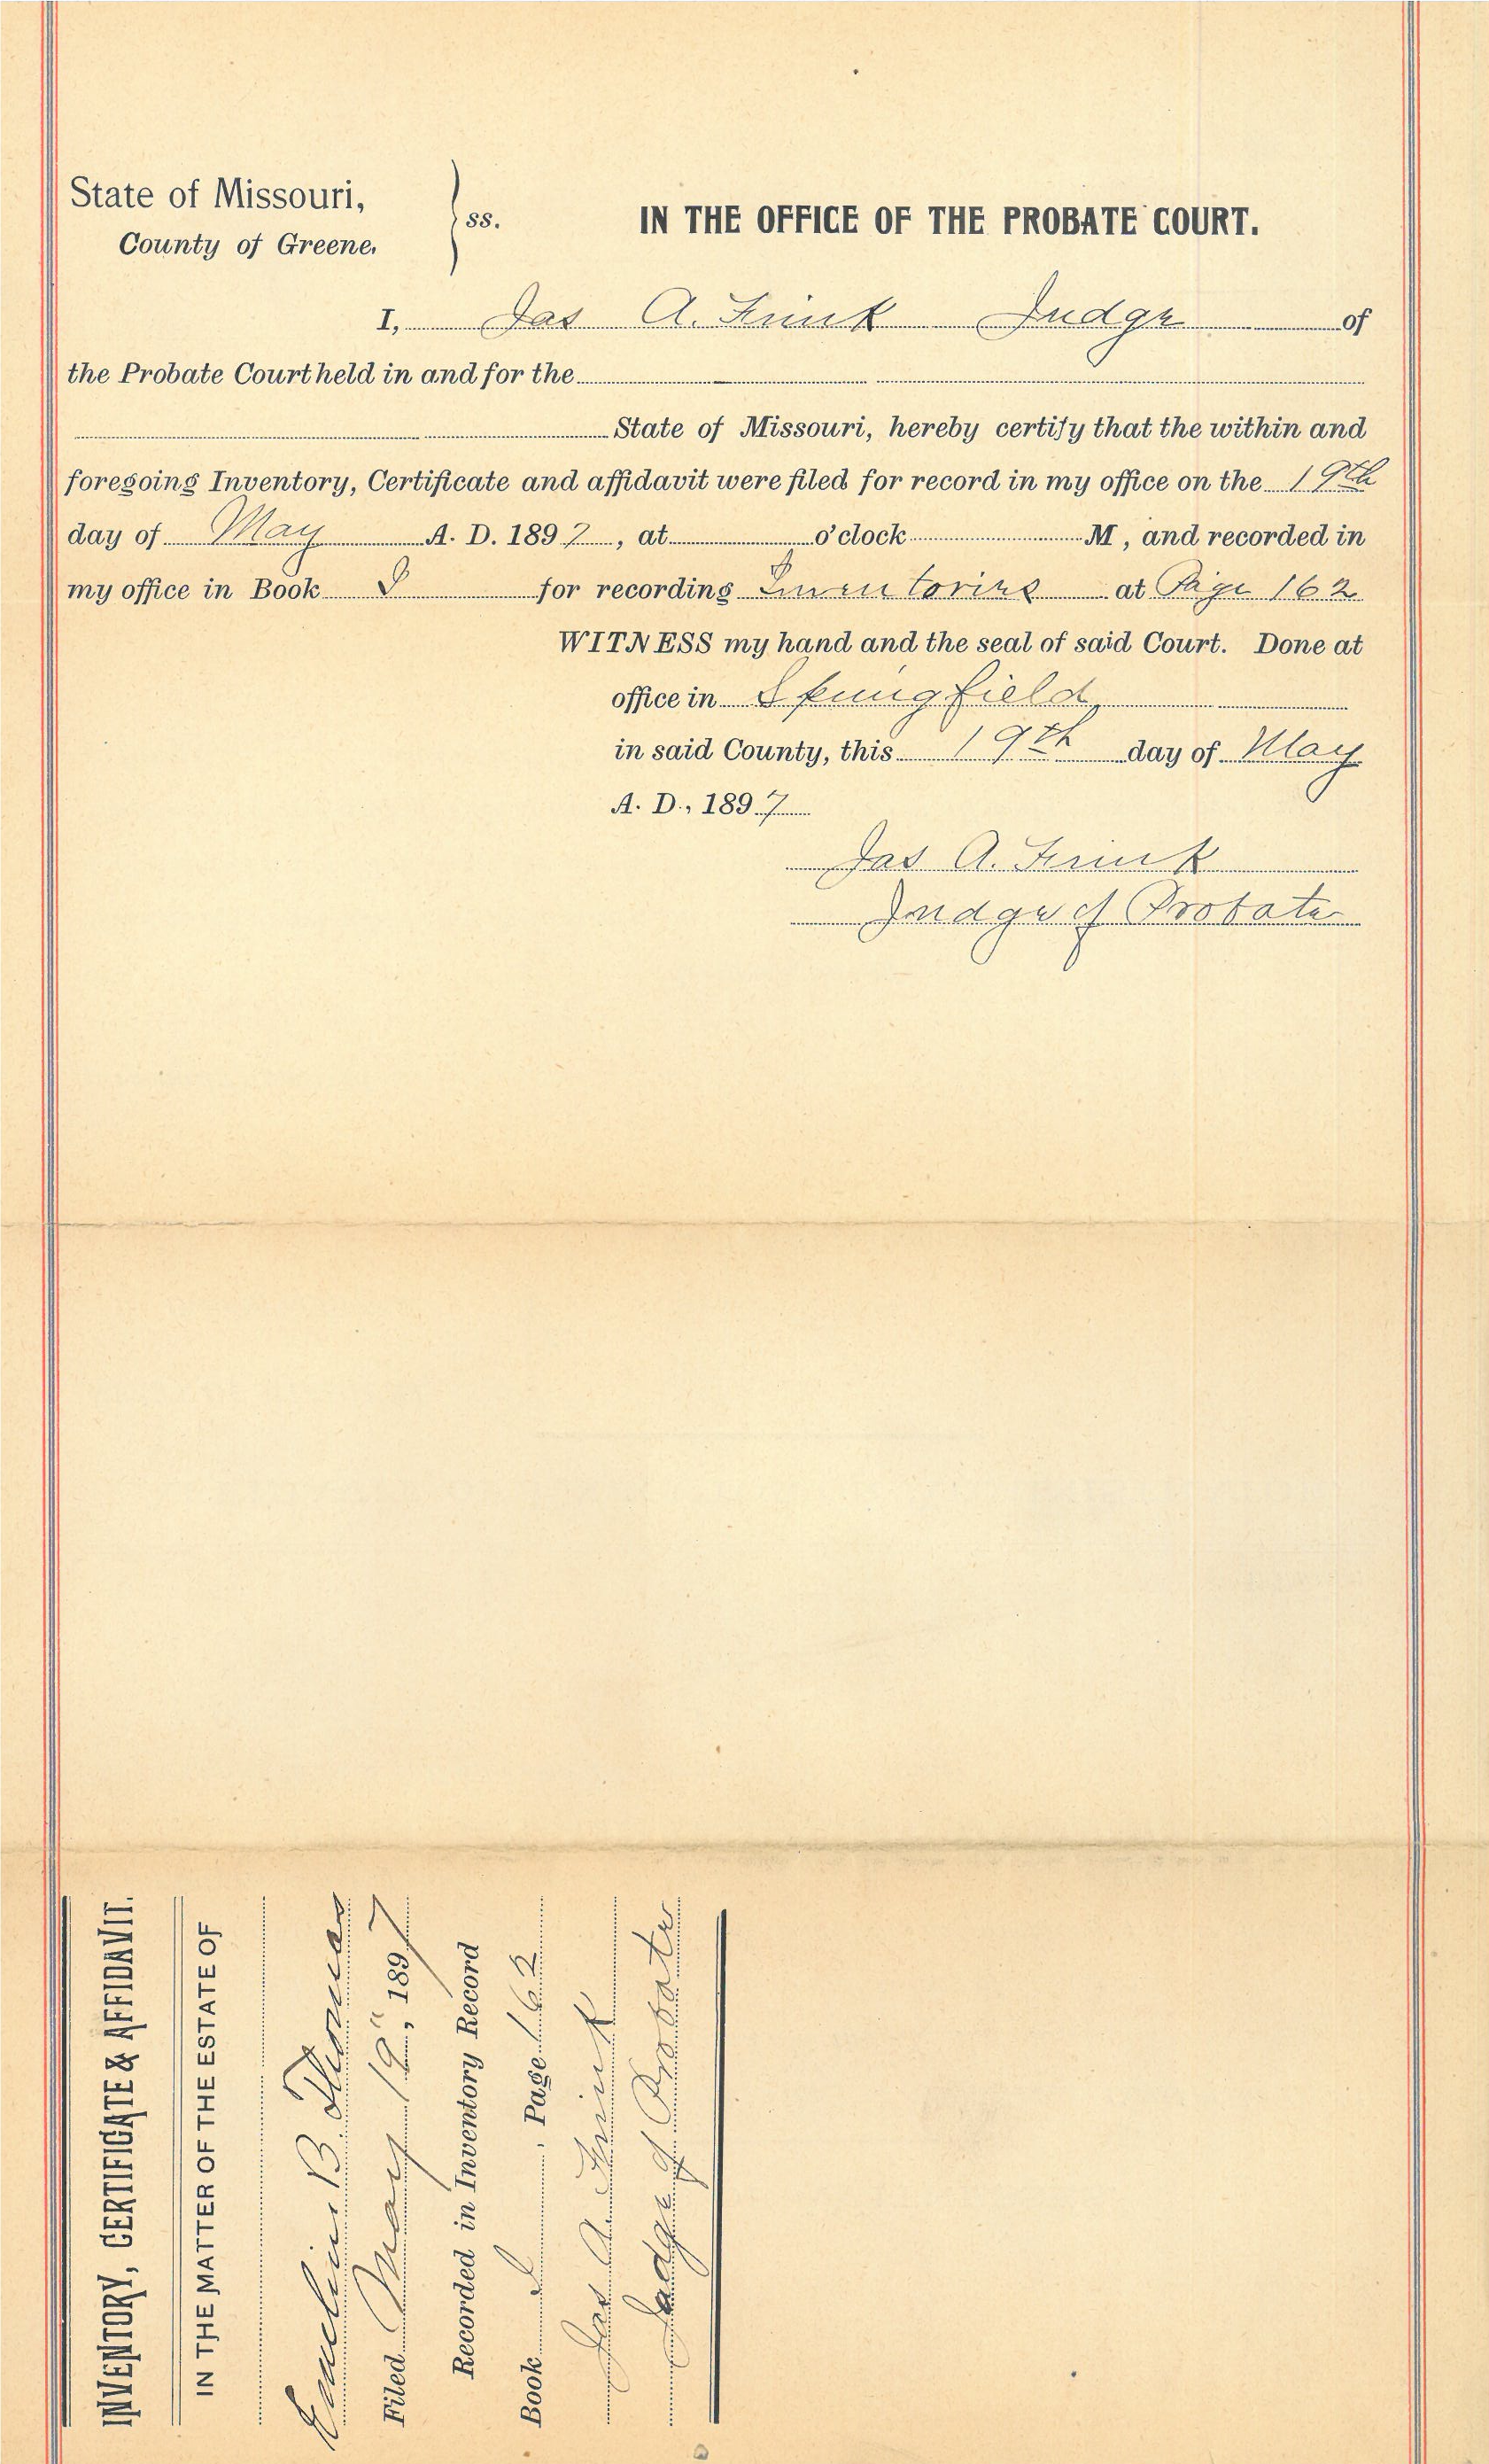 State of Missouri,
County of Greene.
ss.
IN THE OFFICE OF THE PROBATE COURT.
I, Jas A. Frink Judge of
the Probate Court held in and for the
State of Missouri, hereby certify that the within and
foregoing Inventory, Certificate and affidavit were filed for record in my office on the 19th
day of May A. D. 1897, at o'clock M, and recorded in
my office in Book for recording Inventories at Page 162
WITNESS my hand and the seal of said Court. Done at
office in Springfield,
in said County, this 19th day of May
A. D., 1897
Jas A. Frink
Judge of Probate
INVENTORY, CERTIFICATE & AFFIDAVIT.
IN THE MATTER OF THE ESTATE OF
B. Thomas
Filed May 19", 1897
Recorded in Inventory Record
Book , Page 162
Jas A. Frink
Judge of Probate